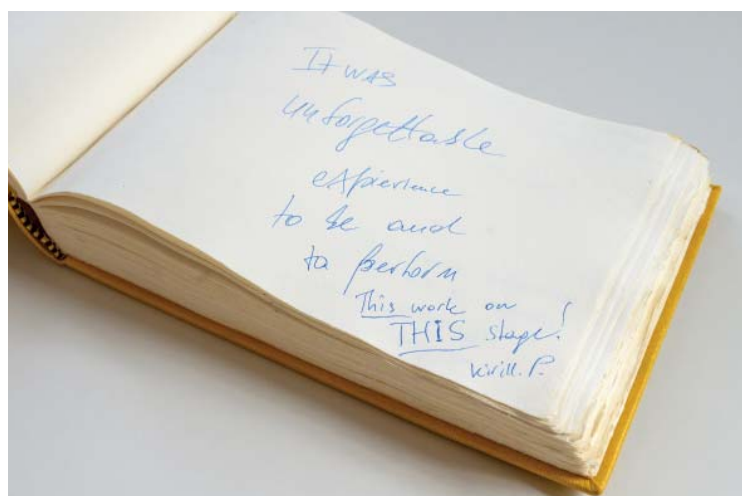 IT WAS
unforgettable
expierience
to be and
to perform
This work on
THIS stage!
Kirill. P.